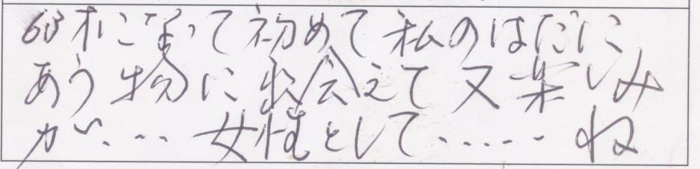 68才になって初めて私のはだに
あう物に出会えて又楽しみ
が…女性として……ね